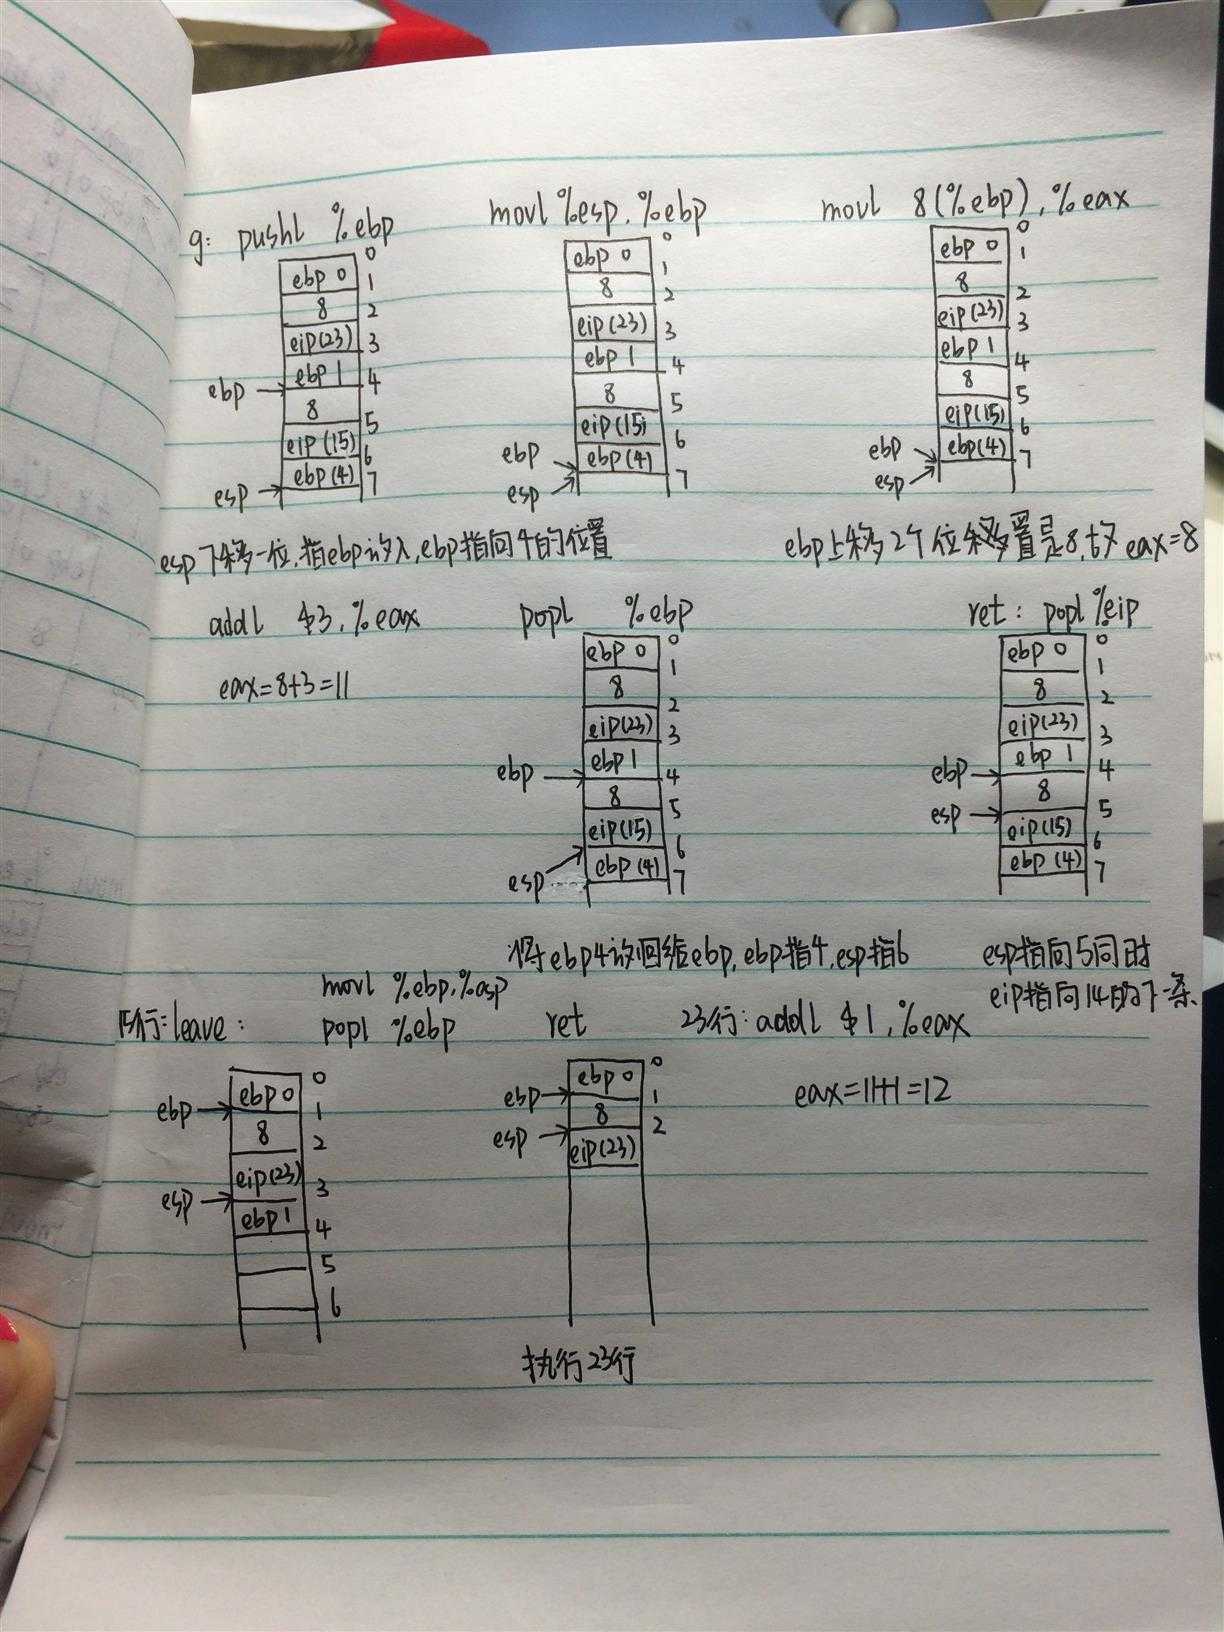 g: pushl %ebp
movl %esp, %ebp
movl 8(%ebp), %eax
ebp 0
8
eip(23)
ebp 1
8
eip(15)
ebp(4)
0
1
2
3
4
5
6
7
ebp
esp
ebp 0
8
eip(23)
ebp 1
8
eip(15)
ebp(4)
0
1
2
3
4
5
6
7
ebp
esp
ebp 0
8
eip(23)
ebp 1
8
eip(15)
ebp(4)
0
1
2
3
4
5
6
7
ebp
esp
esp下移一位,指ebp放入,ebp指向4的位置
ebp上移2个位置是8,故eax=8
addl $3, %eax
eax=8+3=11
popl %ebp
ebp 0
8
eip(23)
ebp 1
8
eip(15)
ebp(4)
0
1
2
3
4
5
6
7
ebp
esp
将ebp4放回给ebp,ebp指4,esp指6
ret: popl %eip
ebp 0
8
eip(23)
ebp 1
8
eip(15)
ebp(4)
0
1
2
3
4
5
6
7
ebp
esp
esp指向5同时
eip指向14的下一条
15行:leave:
movl %ebp,%esp
popl %ebp
ebp 0
8
eip(23)
ebp 1
0
1
2
3
4
5
6
ebp
esp
ret
ebp 0
8
eip(23)
0
1
2
ebp
esp
执行23行
23行: addl $1, %eax
eax=11+1=12